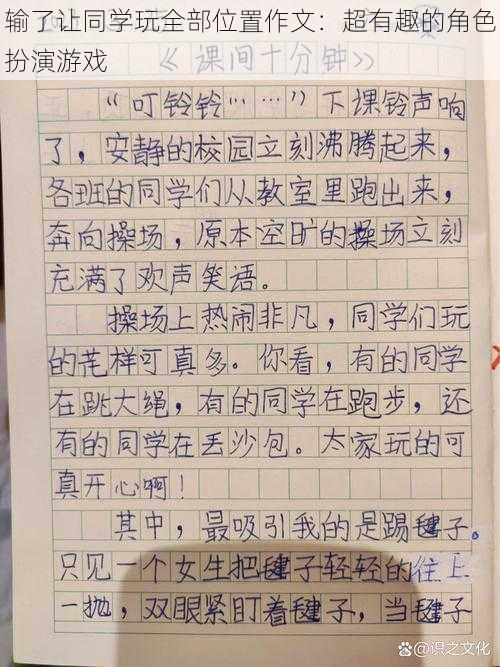 输了让同学玩全部位置作文：超有趣的角色
扮演游戏
《课间十分钟》
“叮铃铃……”下课铃声响
了，安静的校园立刻沸腾起来，
各班的同学们从教室里跑出来，
奔向操场，原本空旷的操场立刻
充满了欢声笑语。
操场上热闹非凡，同学们玩
的花样可真多。你看，有的同学
在跳大绳，有的同学在跑步，还
有的同学在丢沙包。大家玩的可
真开心啊！
其中，最吸引我的是踢毽子。
只见一个女生把毽子轻轻的往上
一抛，双眼紧盯着毽子，当毽子
@识之文化